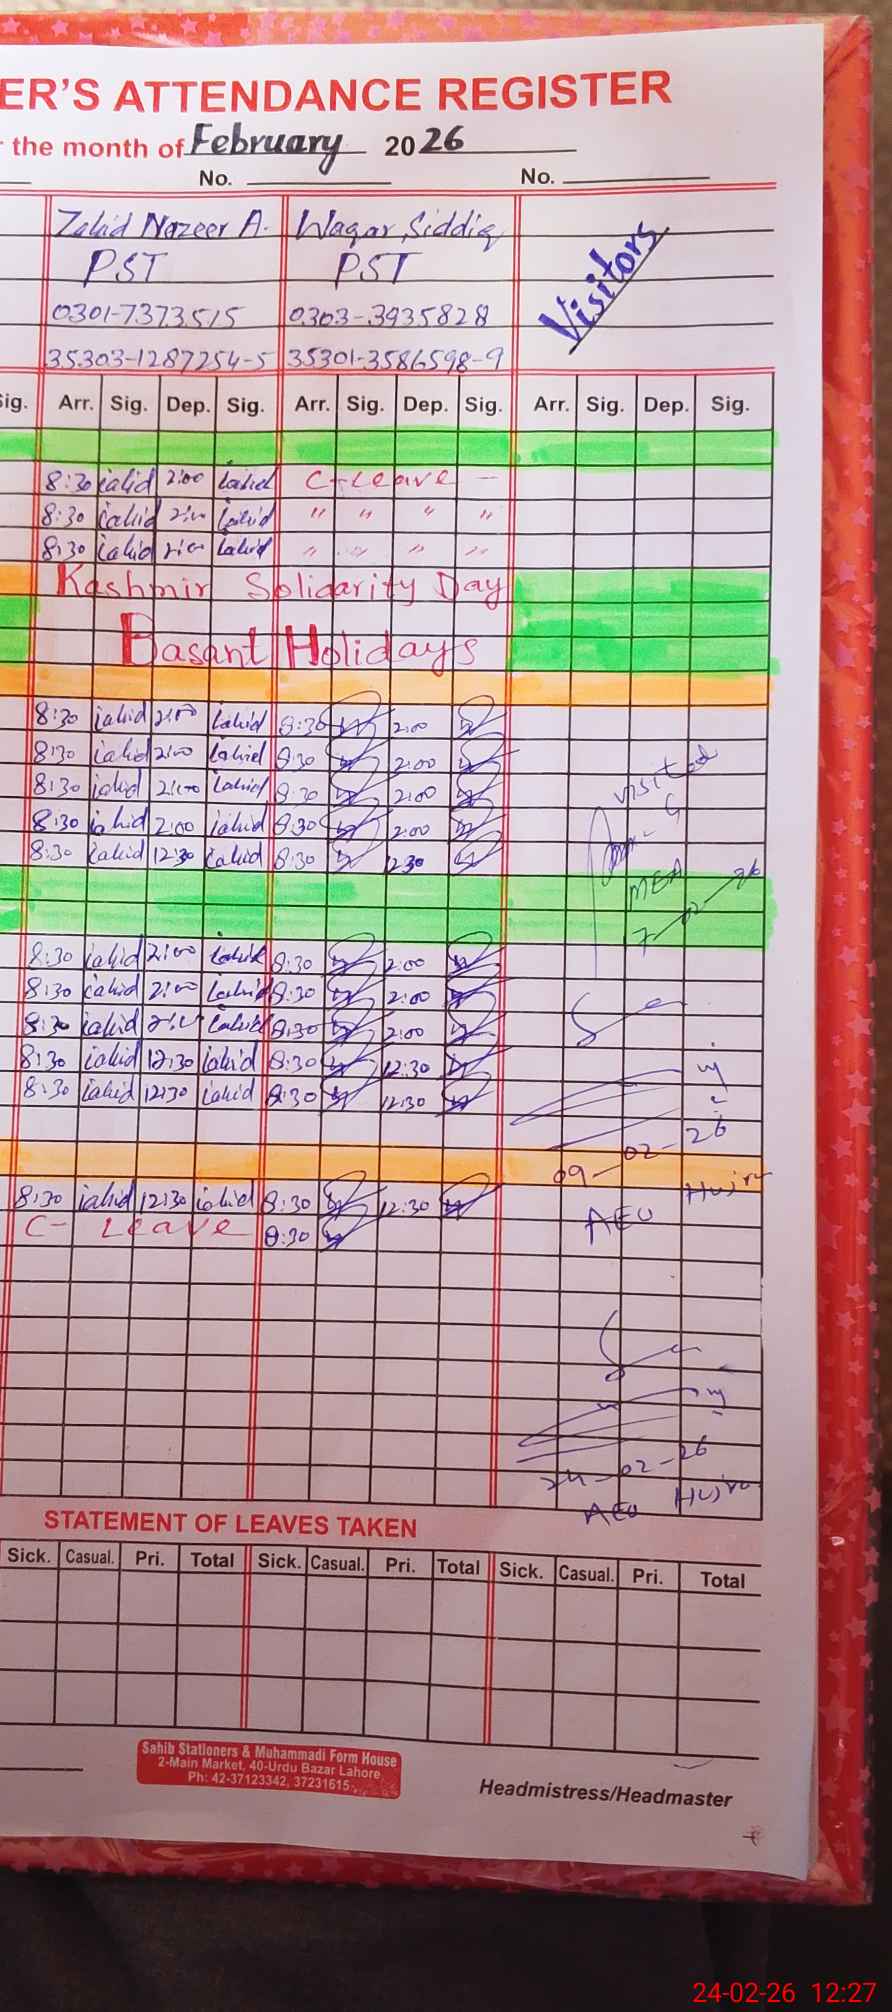 ER'S ATTENDANCE REGISTER
the month of February 2026
No. No.
Zahid Nazeer A. Waqar Siddiq Visitors
PST PST
0301-7373515 0303-3935828
35303-1287254-5 35301-3586598-9
Sig. Arr. Sig. Dep. Sig. Arr. Sig. Dep. Sig. Arr. Sig. Dep. Sig.
8:30 zahid 2:00 zahid C-Leave -
8:30 zahid 2:00 zahid " " " "
8:30 zahid 2:00 zahid " " " "
Kashmir Solidarity Day
Basant Holidays
8:30 zahid 2:00 zahid 8:30 2:00
8:30 zahid 2:00 zahid 8:30 2:00
8:30 zahid 2:00 zahid 8:30 2:00 visited
8:30 zahid 2:00 zahid 8:30 2:00
8:30 zahid 12:30 zahid 8:30 12:30
MEA
7-02-26
8:30 zahid 2:00 zahid 8:30 2:00
8:30 zahid 2:00 zahid 8:30 2:00
8:30 zahid 2:00 zahid 8:30 2:00
8:30 zahid 12:30 zahid 8:30 12:30
8:30 zahid 12:30 zahid 8:30 12:30
09-02-26
8:30 zahid 12:30 zahid 8:30 12:30
C-Leave 8:30 AEO Hujra
24-02-26
AEO Hujra
STATEMENT OF LEAVES TAKEN
Sick. Casual. Pri. Total Sick. Casual. Pri. Total Sick. Casual. Pri. Total
Sahib Stationers & Muhammadi Form House
2-Main Market, 40-Urdu Bazar Lahore
Ph: 42-37123342, 37231615
Headmistress/Headmaster
24-02-26 12:27